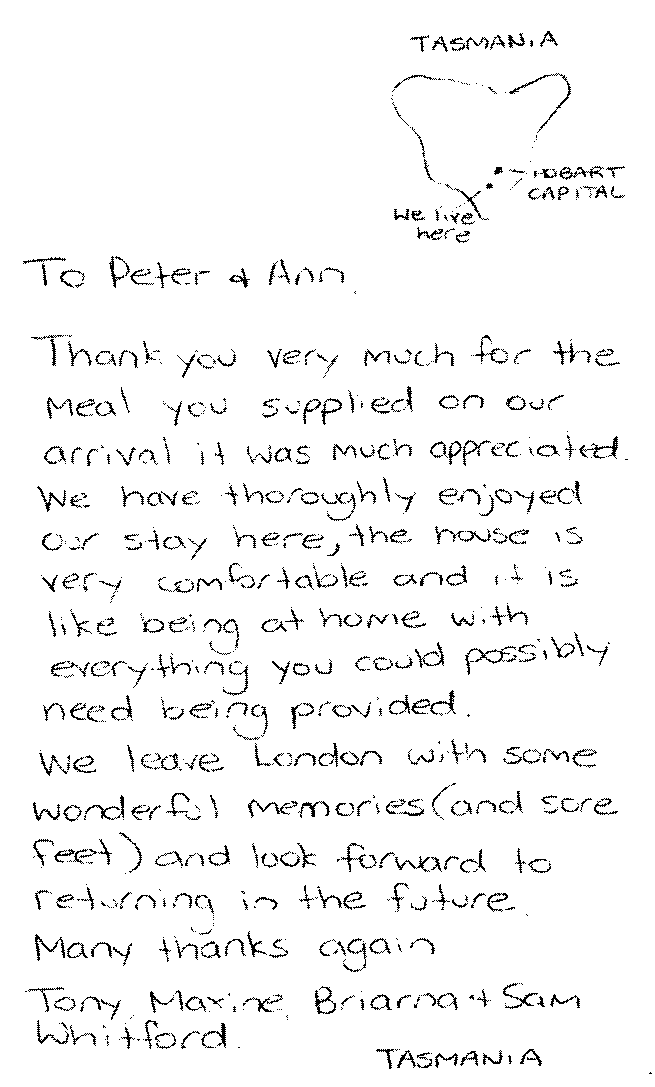 TASMANIA
HOBART
CAPITAL
We live
here
To Peter & Ann.
Thank you very much for the
meal you supplied on our
arrival it was much appreciated.
We have thoroughly enjoyed
our stay here, the house is
very comfortable and it is
like being at home with
everything you could possibly
need being provided.
We leave London with some
wonderful memories (and sore
feet) and look forward to
returning in the future.
Many thanks again
Tony, Maxine, Briarna + Sam
Whitford.
TASMANIA